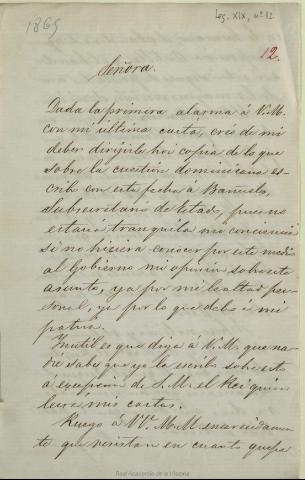 Leg. XIX, nº 12
1865
12.
Señora.
Dada la primera alarma á V.M.
con mi última carta, creo de mi
deber dirijirle hoi copia de lo que
sobre la cuestion dominicana es-
cribo con esta fecha á Bañuelos,
Subsecretario de Estado, pues no
estaria tranquila mi conciencia
si no hiciera conocer por este medio
al Gobierno mi opinion sobre este
asunto, ya por mi lealtad per-
sonal, ya por lo que debo á mi
patria.
Inutil es que diga á V.M. que na-
die sabe que yo la escribo sobre esto
á escepcion de S.M. el Rei quien
leerá mis cartas.
Ruego á VV. M.M. encarecidamen-
te que resistan en cuanto quepa
Real Academia de la Historia